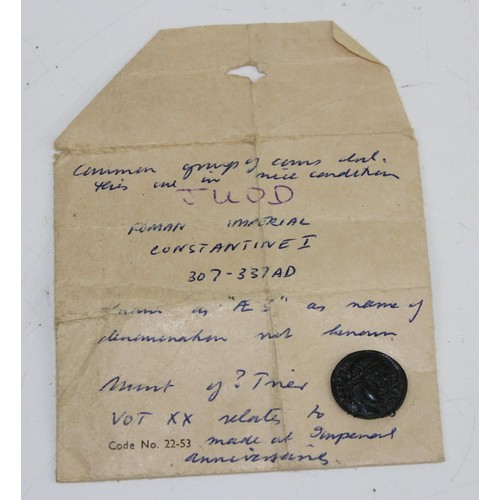 common group of coins but.
this one in nice condition
ROMAN IMPERIAL
CONSTANTINE I
307-337AD
known as "Æ3" as name of
denomination not known
Mint of ? Trier
VOT XX relates to
Code No. 22-53 made at Imperial
anniversaries.